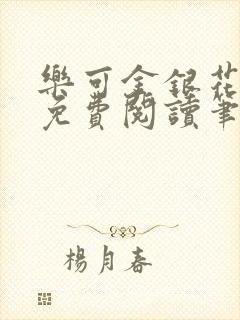 樂可金銀花
免費閱讀筆
楊月春